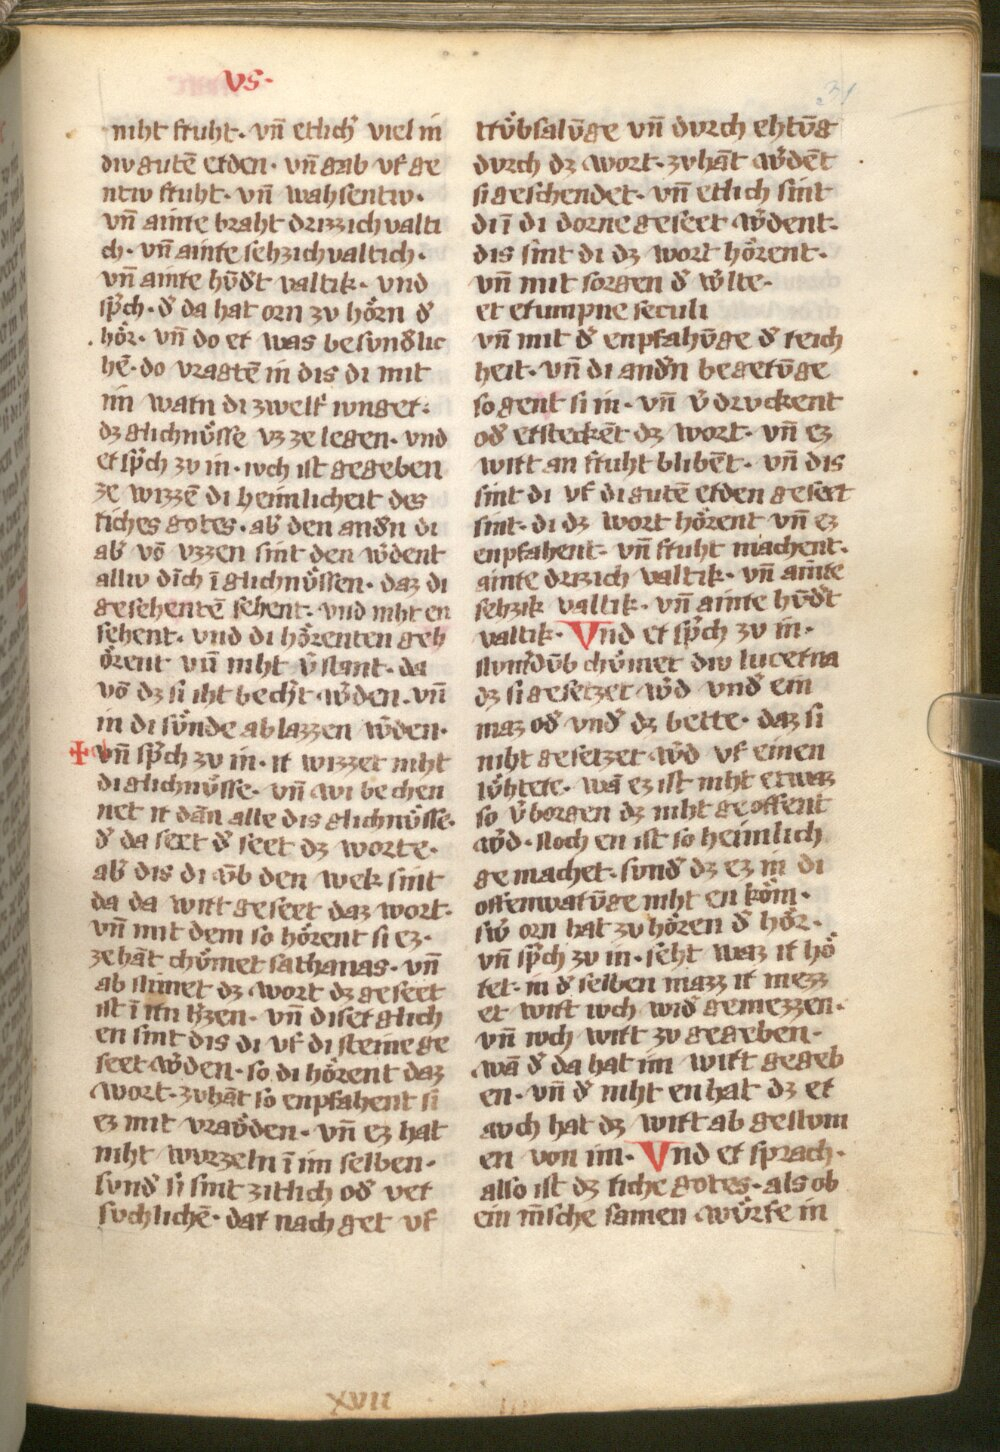 VS·
31
niht fruht· vn̄ etlich̓ viel in
div gutē erden· vn̄ gab vf ge
ntiv fruht· vn̄ wahsentiv·
vn̄ ainte braht drizzichvalti
ch· vn̄ ainte sehzichvaltich·
vn̄ ainte hūd̓t valtik· vnd
sp̓ch· d̓ da hat orn zv hoͤrn d̓
hoͤr· vn̄ do er was besvnd̓lic
hē· do vragtē in dis di mit
im warn di zwelf ivnger·
dz glichnuͤsse vz ze legen· vnd
er sp̓ch zv in· ivch ist gegeben
ze wizzē di heimlicheit des
riches gotes· ab̓ den and̓n di
ab̓ vō vzzen sint den w̓dent
alliv dīch ī glichnuͤssen· daz di
gesehentē sehent· vnd niht en
sehent· vnd di hoͤrenten geh
oͤrent vn̄ niht v̓stant· da
vō dz si iht bech̓t w̓den· vn̄
in di suͤnde ablazzen w̓den·
vn̄ sp̓ch zv in· ir wizzet niht
di glichnuͤsse· vn̄ wi bechen
net ir dān alle dis glichnuͤsse·
d̓ da seet d̓ seet dz worte·
ab̓ dis di vm̄b den wek sint
da da wirt geseet daz wort·
vn̄ mit dem so hoͤrent si ez·
zehāt chuͤmet sathanas· vn̄
ab nimet dz wort dz geseet
ist ī irn h̓zen· vn̄ diser glich
en sint dis di vf di steine ge
seet w̓den· so di hoͤrent daz
wort· zvhāt so enpfahent si
ez mit vraͮden· vn̄ ez hat
niht wvrzeln ī im selben·
svnd̓ si sint zitlich od̓ ver
svchlichē· dar nach get vf
truͤbsalūge vn̄ dvrch ehtūg
dvrch dz wort· zvhāt w̓dēt
si geschendet· vn̄ etlich sint
di ī di dorne geseet w̓dent·
dis sint di dz wort hoͤrent·
vn̄ mit sorgen d̓ w̓lte·
et erumpne seculi
vn̄ mit d̓ enpfahūge d̓ reich
heit· vn̄ di and̓n begerūge
so gent si in· vn̄ v̓drvckent
od̓ ersteckēt dz wort· vn̄ ez
wirt an fruht blibēt· vn̄ dis
sint di vf di gutē erden geseet
sint· di dz wort hoͤrent vn̄ ez
enpfahent· vn̄ fruht machent·
ainte drizich valtik· vn̄ ainte
sehzik valtik· vn̄ ainte hūd̓t
valtik· Vnd er sp̓ch zv in·
chuͤmet div lucerna
dz si gesetzet w̓d vnd̓ ein
maz od̓ vnd̓ dz bette· daz si
niht gesetzet w̓d vf einen
luͤhtere· wā ez ist niht etwaz
so v̓borgen dz niht geoffent
w̓d· noch en ist so heimlich
gemachet· svnd̓ dz ez in di
offenwarūge niht en koͤm·
sw̓ orn hat zv hoͤren d̓ hoͤr·
vn̄ sp̓ch zv in· seht waz ir hoͤ
ret· in d̓ selben mazz ir mezz
et wirt ivch wid̓ gemezzen·
vn̄ ivch wirt zv gegeben·
wā d̓ da hat im wirt gegeb
en· vn̄ d̓ niht en hat dz er
avch hat dz wirt ab genvm
en von im· Vnd er sprach·
also ist dz riche gotes· als ob
ein m̄sche samen wuͤrfe in
XVII